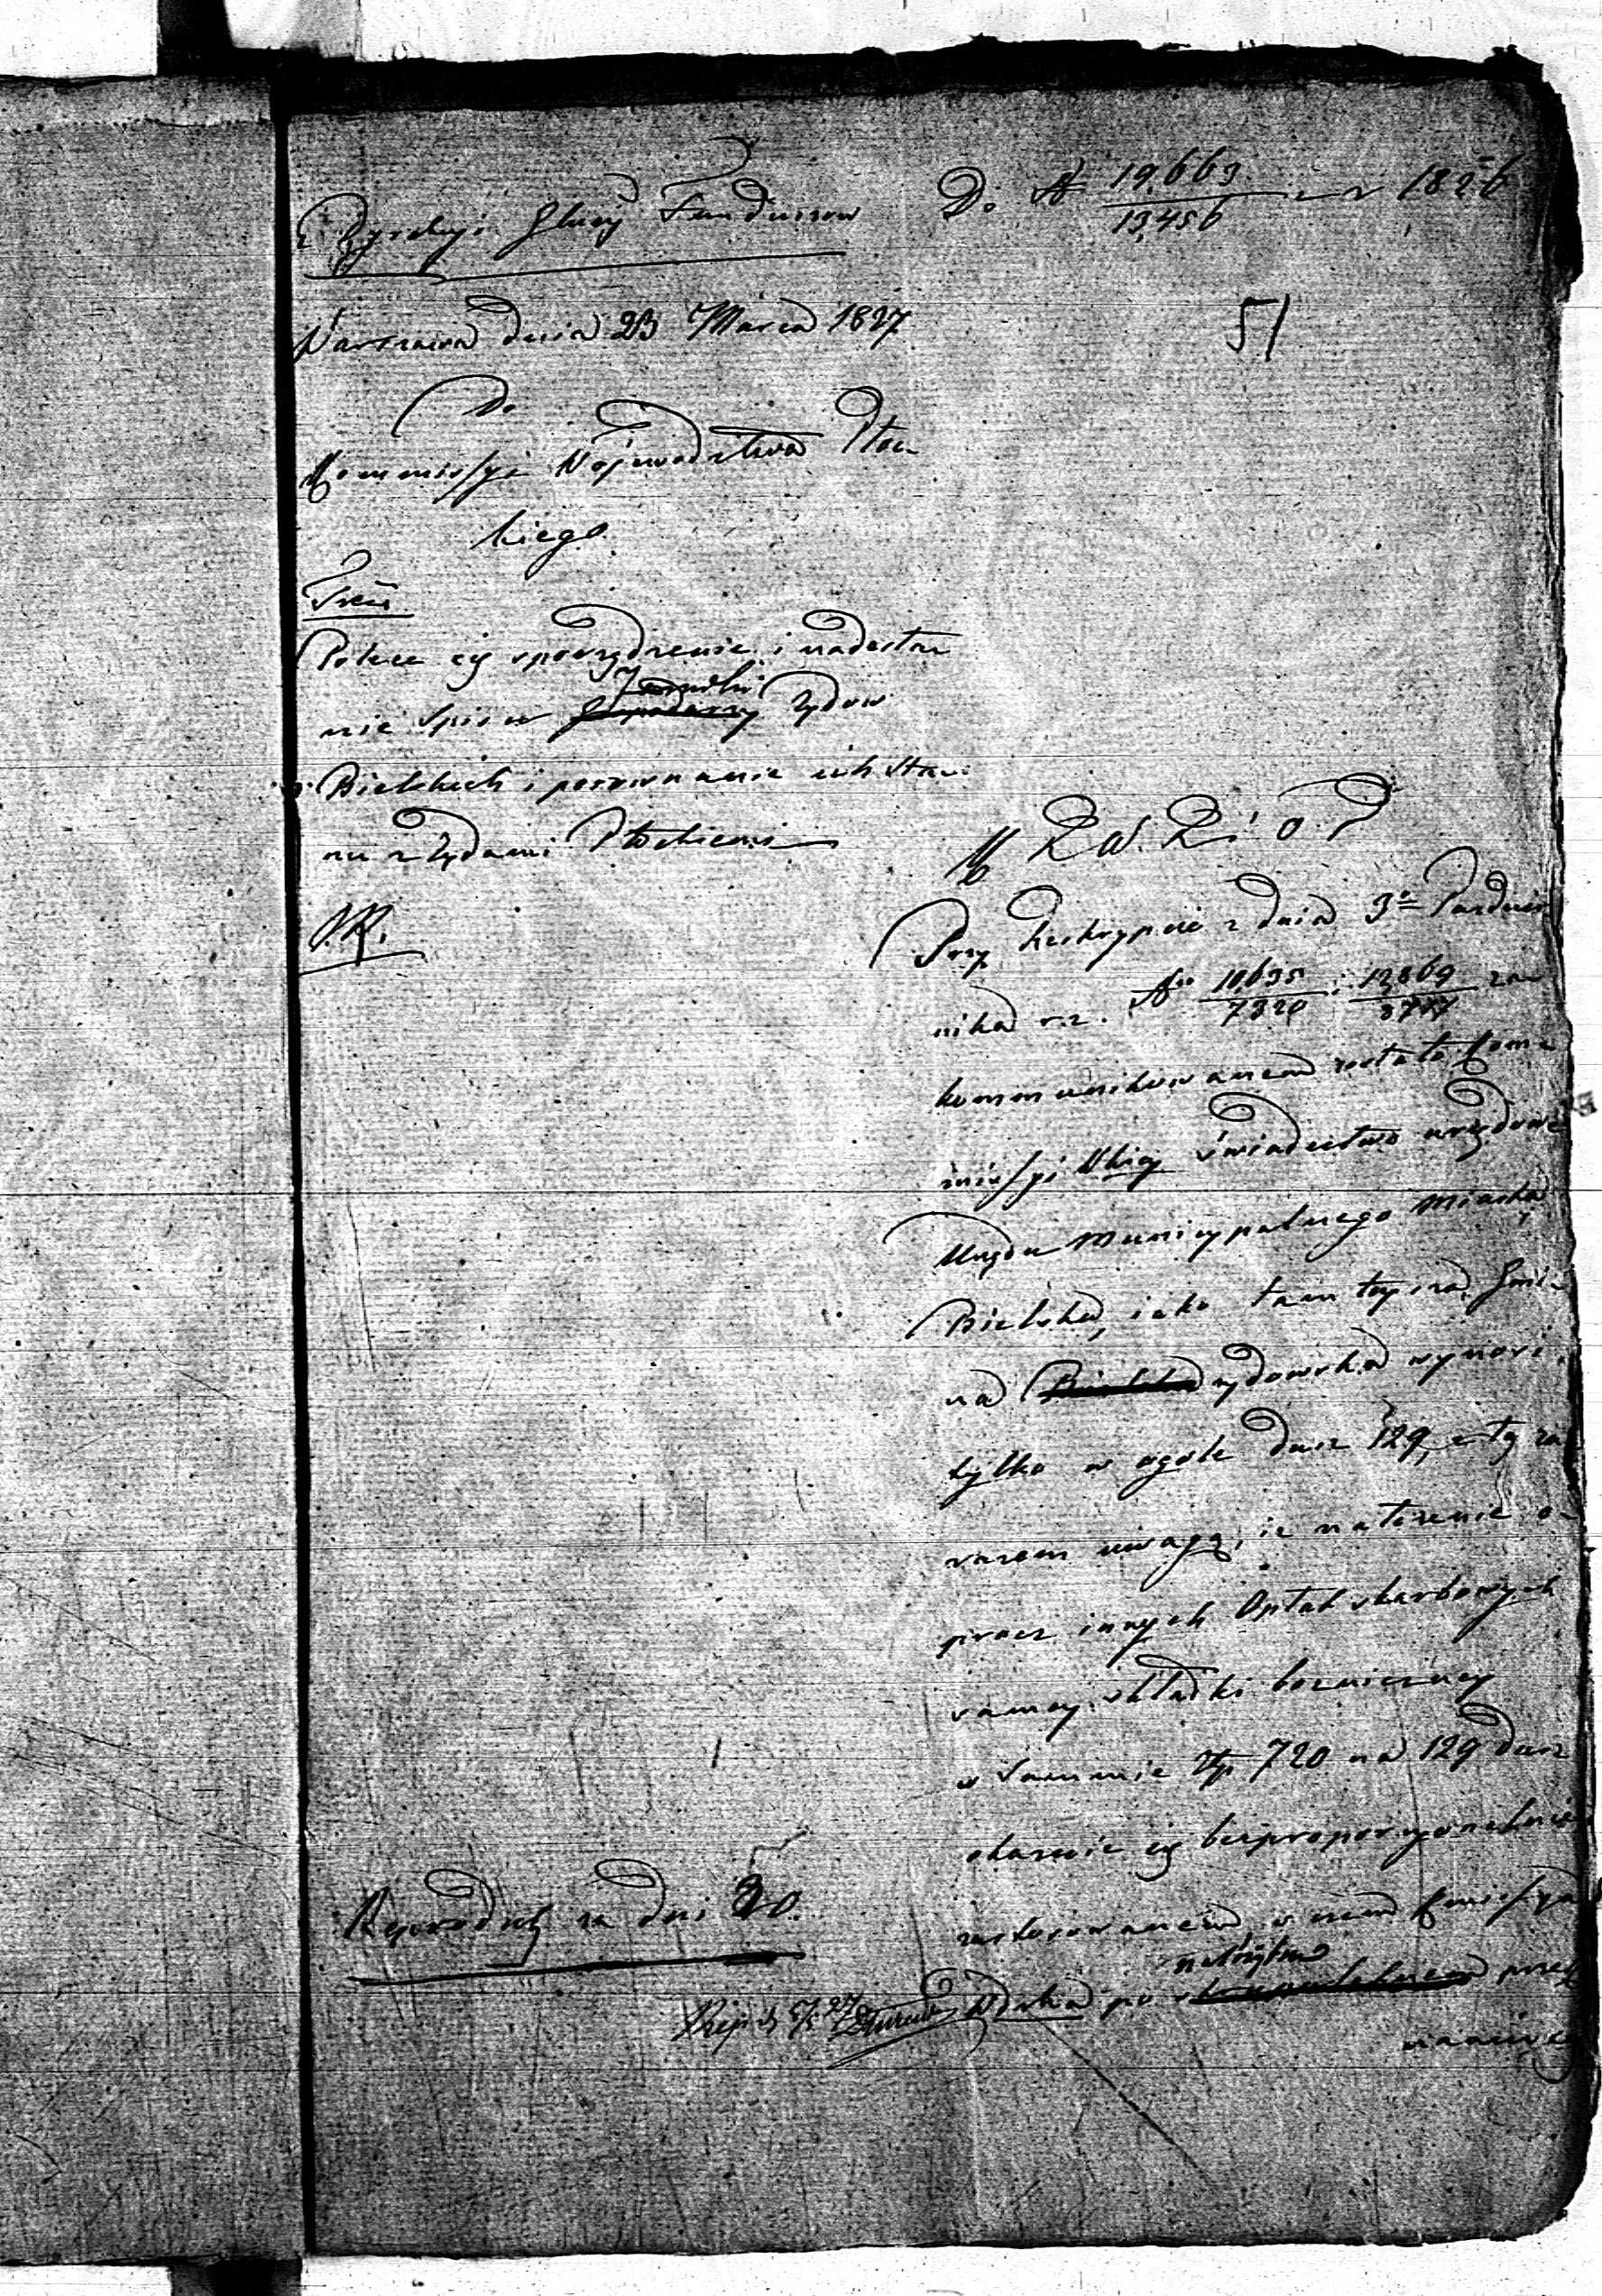 Z Dyrekcyi Głwej Funduszow
Do N 19,663 / 13,456 z r 1826
Warszawa dnia 23 Marca 1827
51
Do
Kommissyi Wojewodztwa Płoc
kiego
Treść
Poleca się sporządzenie i nadesła
nie spisu Żydow
Bielskich i porownanie ich sta
nu z Żydami Płockiemi
K R W. R. i O. P
Przy Reskrypcie z dnia 3 Pazdzier
nika r. z. No 10,635 / 7320 i 12,869 / 8787 za
kommunikowanem zostało Kom
missyi Wkiej świadectwo urzędowe
Urzędu Municypalnego Miasta
Bielska, iako tamteysza Gmi
na Bielska żydowska wynosi
tylko w ogole dusz 129, z tą za
razem uwagą, iż nałożenie o
procz innych Opłat skarbowych
samey składki bozniczney
w Summie Złp 720 na 129 dusz
okazuie się bezproporcyonalnie
zastosowanem, w czem Kmissya
Wdzka po
Reprodukcya za dni 30.